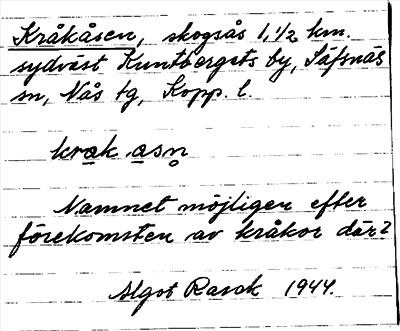 Kråkåsen, skogsås 1,1/2 km.
sydväst Kuntbergets by, Säfsnäs
sn, Nås tg, Kopp. l.
krak asn̥
Namnet möjligen efter
förekomsten av kråkor där?
Algot Rask 1944.